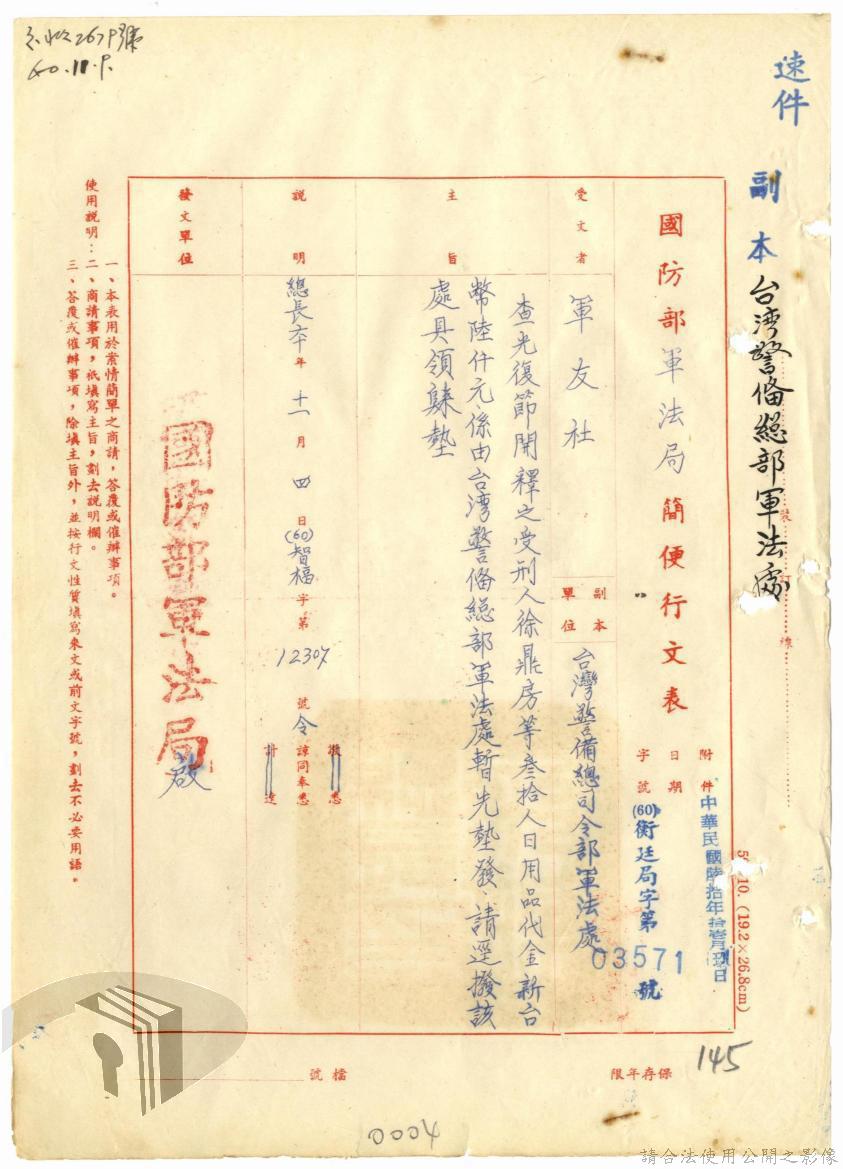 速件
副本
台湾警备總部軍法處
裝訂線
國防部軍法局簡便行文表
附件
日期 中華民國陸拾年拾壹月玖日
字號 (60)衡廷局字第03571號
受文者 軍友社
副本單位 台灣警備總司令部軍法處
主旨
查光復節開釋之受刑人徐鼎房等叁拾人日用品代金新台
幣陸仟元,係由台湾警备總部軍法處暫先墊發,請逕撥該
處具領歸墊
說明
總長本年十一月四日(60)智福字第12307號令
敬悉
諒同奉悉
計達
發文單位
國防部軍法局
啟
使用說明:
一、本表用於案情簡單之商請,答覆或催辦事項。
二、商請事項,祇填寫主旨,劃去說明欄。
三、答覆或催辦事項,除填主旨外,並按行文性質填寫來文或前文字號,劃去不必要用語。
10. (19.2×26.8cm)
145
保存年限
檔號
0004
請合法使用公開之影像